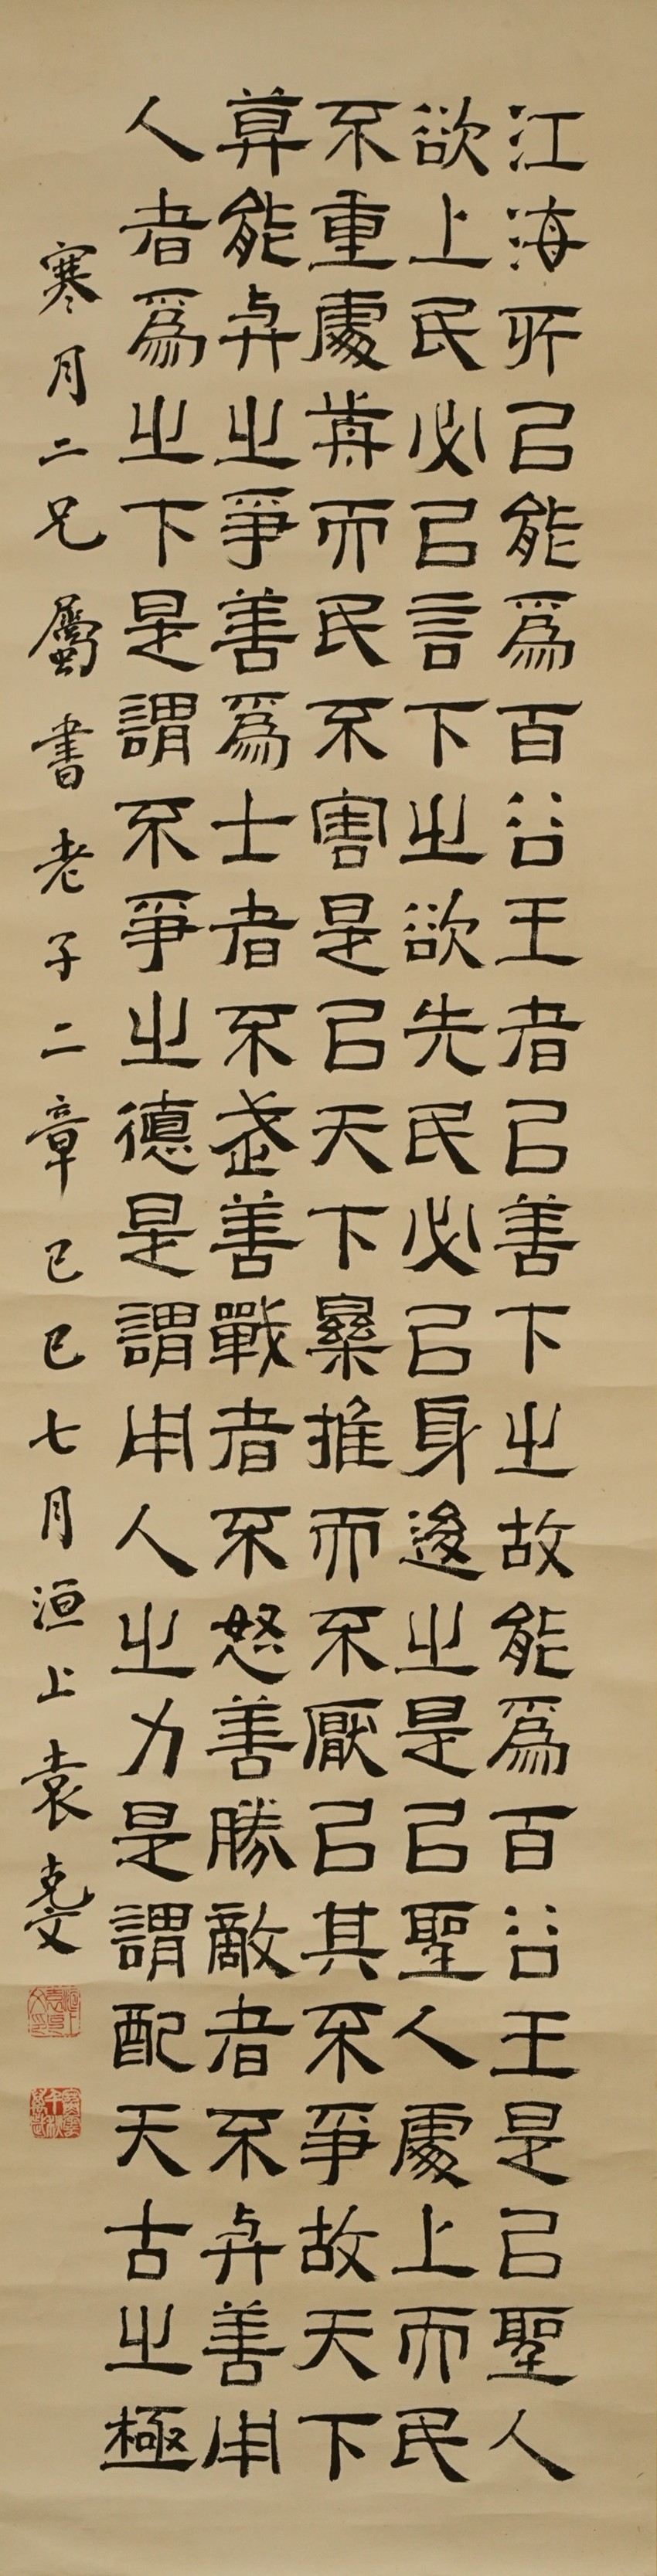 江海所以能爲百谷王者以善下之故能爲百谷王是以聖人
欲上民必以言下之欲先民必以身後之是以聖人處上而民
不重處前而民不害是以天下樂推而不厭以其不爭故天下
莫能與之爭善爲士者不武善戰者不怒善勝敵者不與善用
人者爲之下是謂不爭之德是謂用人之力是謂配天古之極
寒月二兄屬書老子二章己巳七月洹上袁克文